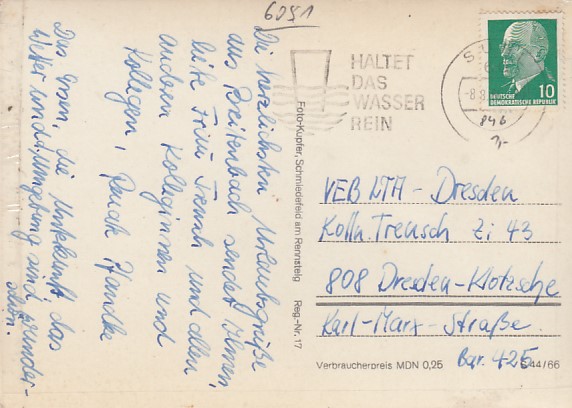 6051
Die herzlichsten Urlaubsgrüße
aus Breitenbach sendet Ihnen,
liebe Frau Trensch und allen
anderen Kolleginnen und
Kollegen,
Das Essen, die Unterkunft, das
Wetter und Umgebung sind wunder-
schön.
HALTET
DAS
WASSER
REIN
10
DEUTSCHE
DEMOKRATISCHE REPUBLIK
Foto-Kupfer, Schmiedefeld am Rennsteig Reg.-Nr. 17
VEB LTA - Dresden
Kolln. Trensch Zi 43
808 Dresden-Klotzsche
Karl-Marx-Straße
Bgr. 425
Verbraucherpreis MDN 0,25
44/66